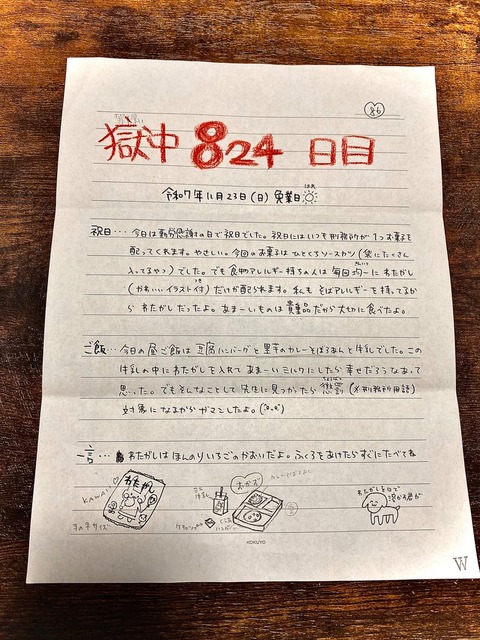 86
獄中 824 日目
令和7年11月23日(日) 免業日
祝日・・・今日は勤労感謝の日で祝日でした。祝日にはいつも刑務所が1つお菓子を
配ってくれます。やさしい。今回のお菓子はひとくちソースカツ(袋にたくさん
入ってるやつ)でした。でも食物アレルギー持ちの人は毎回均一にわたがし
(かわいいイラスト付)だけが配られます。私もそばアレルギーを持ってるか
らわたがしだったよ。あまーいものは貴重品だから大切に食べたよ。
ご飯・・・今日の昼ご飯は豆腐ハンバーグと里芋のカレーそぼろあんと牛乳でした。この
牛乳の中にわたがしを入れてあまーいミルクにしたら幸せだろうなあって
思った。でもそんなことして先生に見つかったら懲罰(※刑務所用語)
対象になるからガマンしたよ。
一言・・・わたがしはほんのりいちごのかおりだよ。ふくろをあけたらすぐにたべてね
KAWAII
手の平サイズ
ケチャップ
おかず
わたがし
溶かす君が
KOKUYO
W